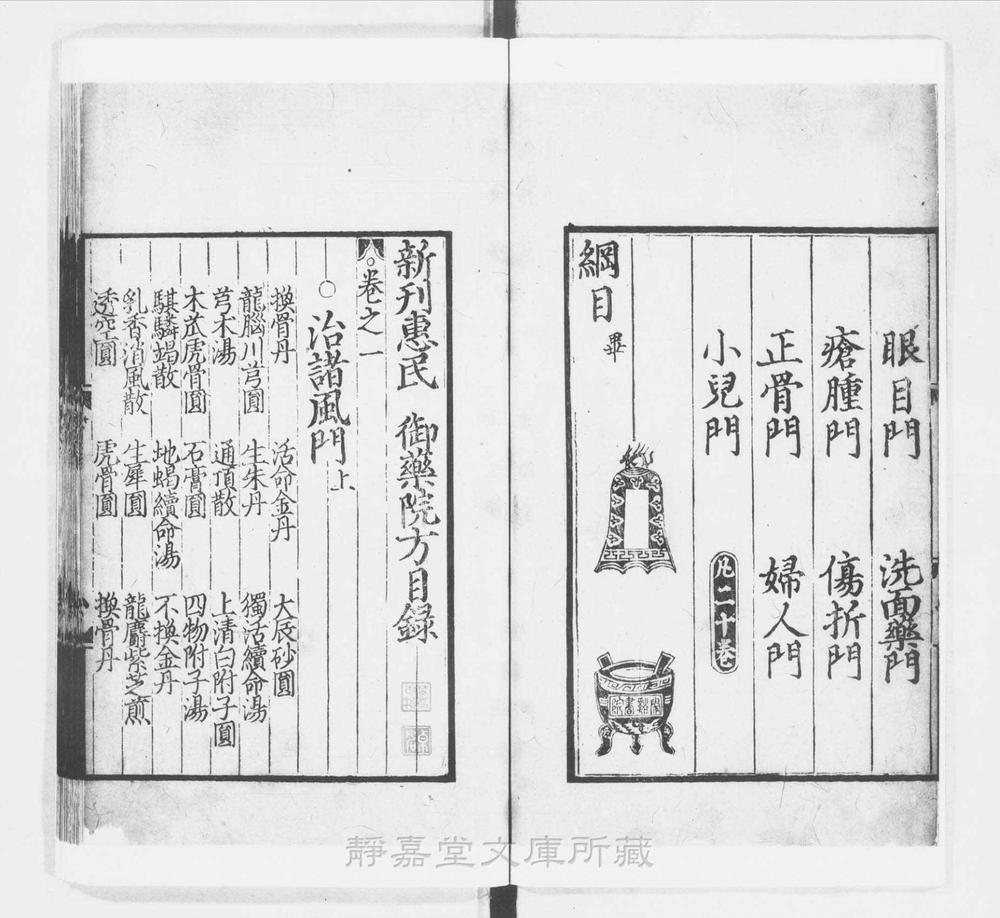 眼目門 洗面藥門
瘡腫門 傷折門
正骨門 婦人門
小兒門
凡二十卷
綱目畢
南谿書院
新刊惠民御藥院方目録
卷之一
治諸風門上
換骨丹 活命金丹 大辰砂圓
龍腦川芎圓 生朱丹 獨活續命湯
芎朮湯 通頂散 上清白附子圓
木苽虎骨圓 石膏圓 四物附子湯
騏驎竭散 地蝎續命湯 不換金丹
乳香消風散 生犀圓 龍麝紫芝煎
透空圓 虎骨圓 換骨丹
靜嘉堂文庫所藏